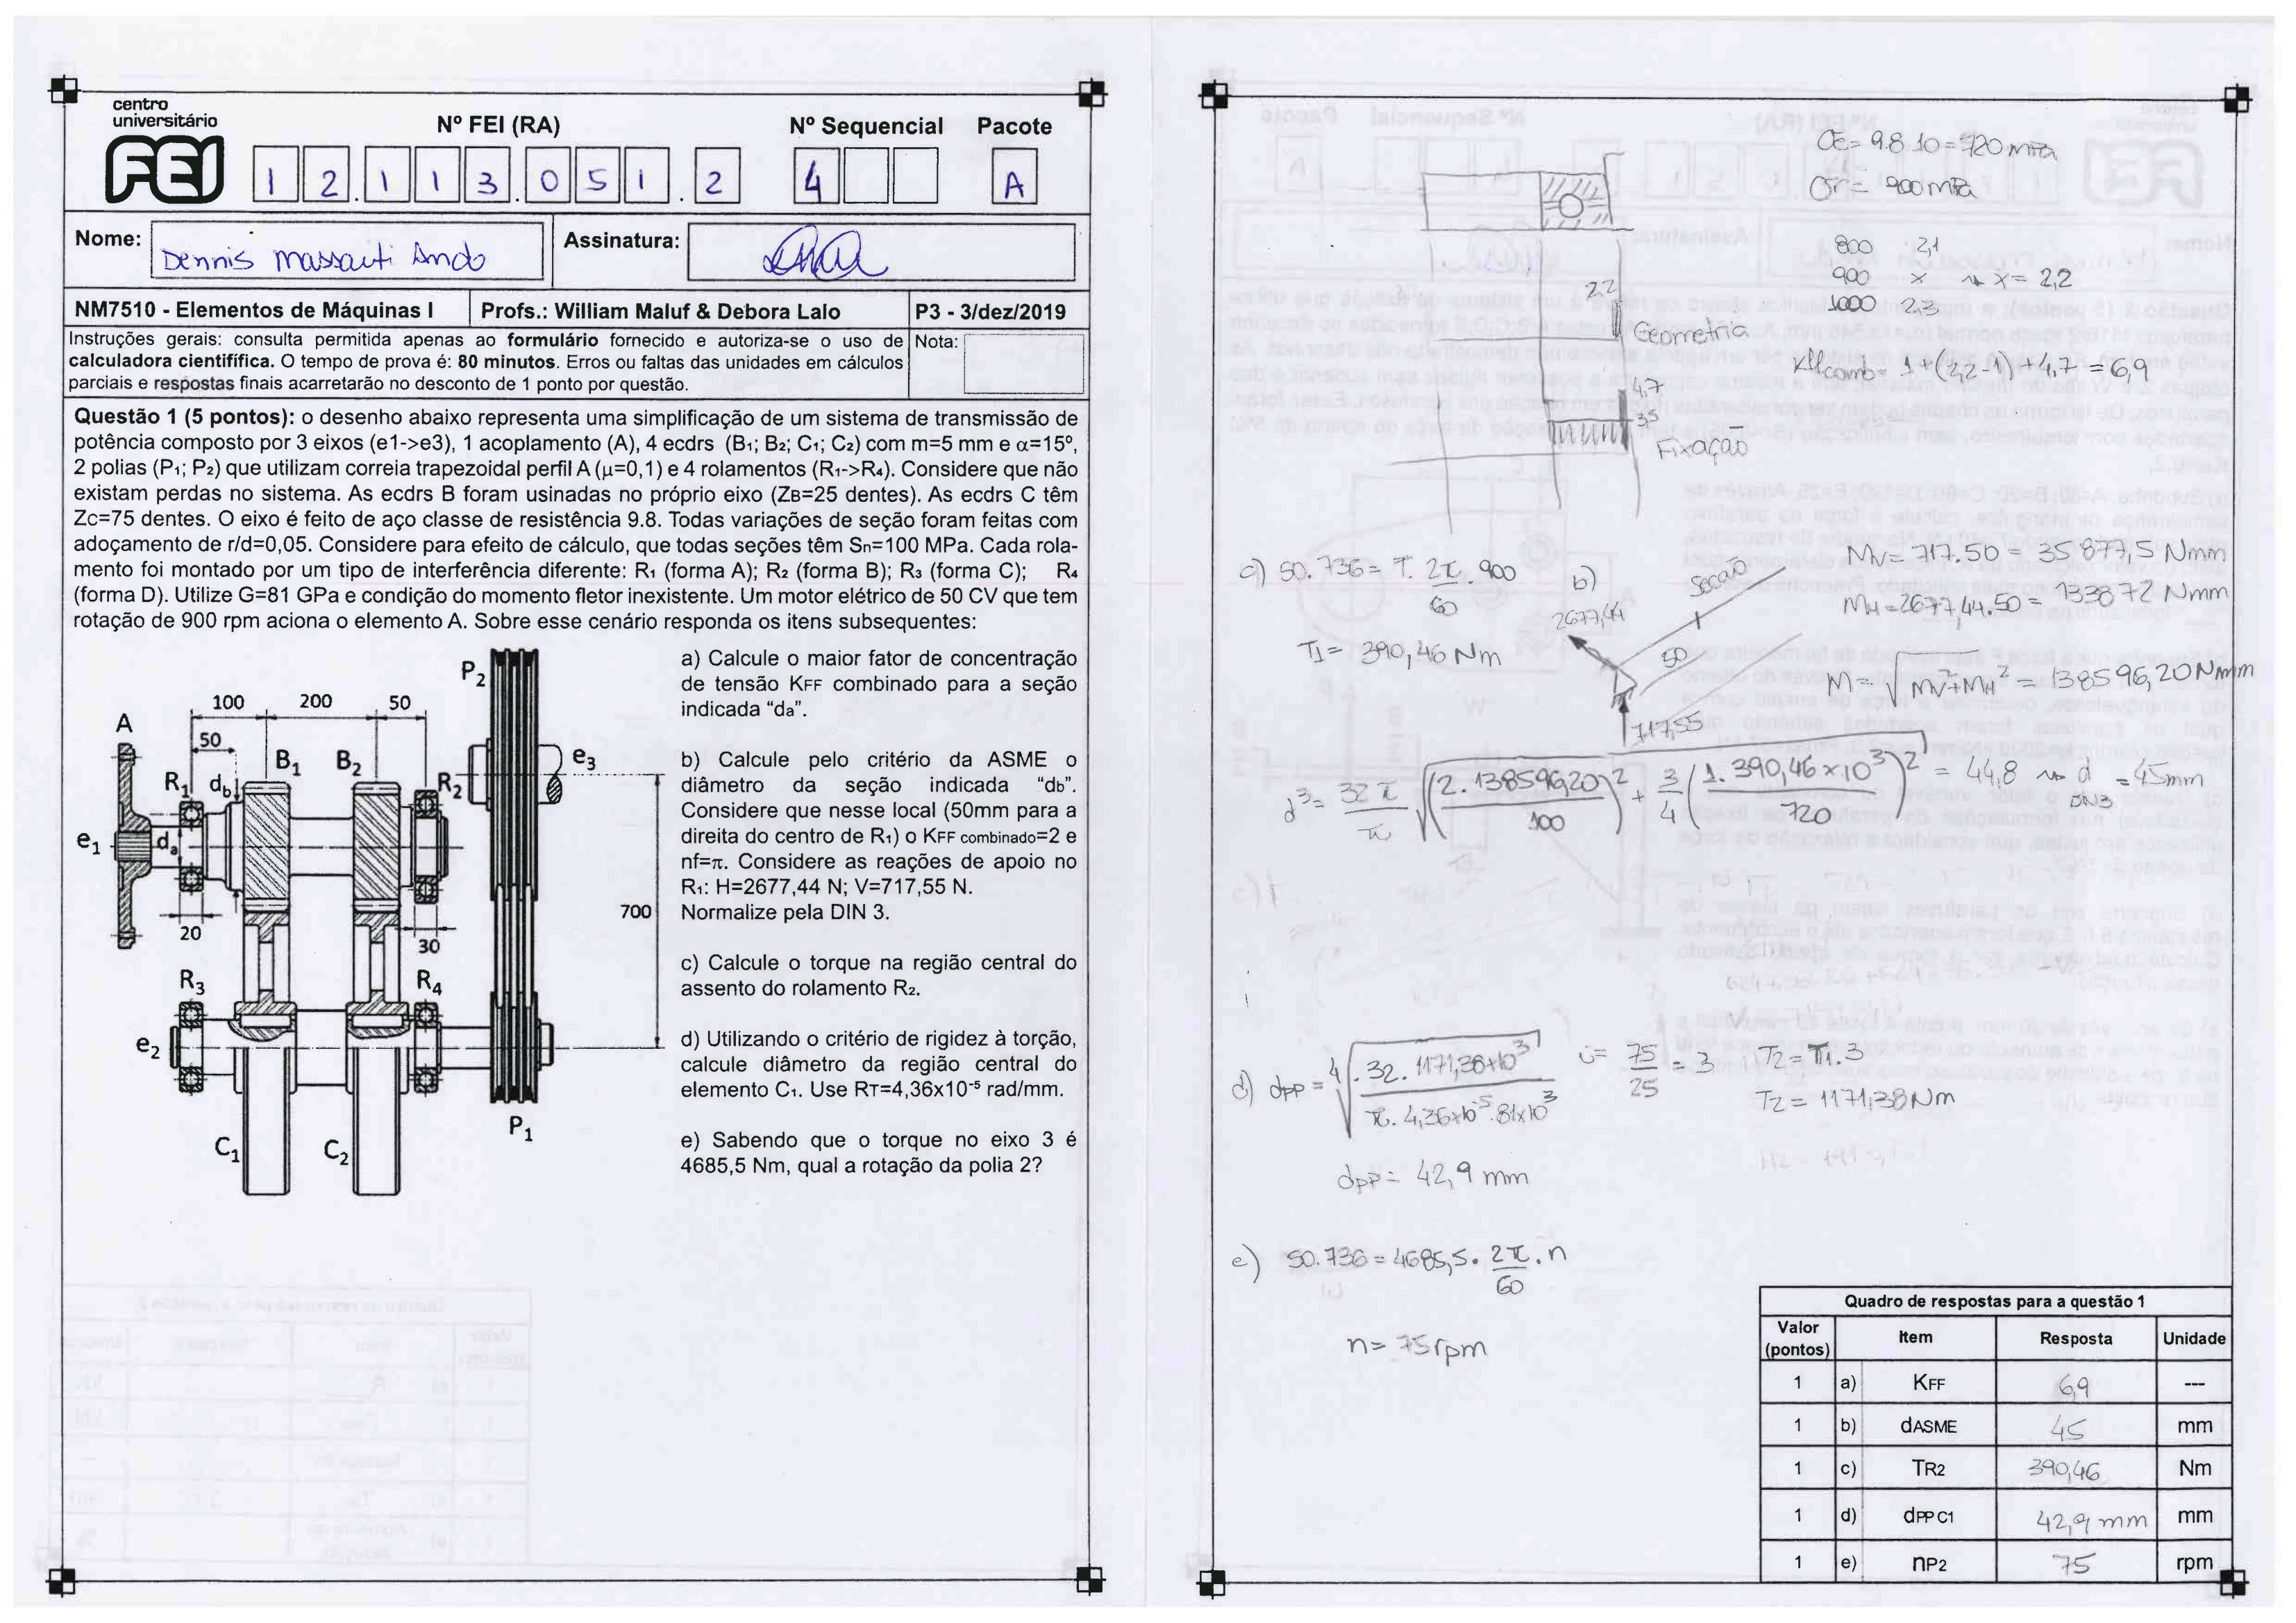 centro
universitário
FEI
Nº FEI (RA)
Nº Sequencial
Pacote
1 2 . 1 1 3 . 0 5 1 . 2
4
A
Nome:
Dennis Massauti Ando
Assinatura:
NM7510 - Elementos de Máquinas I
Profs.: William Maluf & Debora Lalo
P3 - 3/dez/2019
Instruções gerais: consulta permitida apenas ao formulário fornecido e autoriza-se o uso de
calculadora cientifífica. O tempo de prova é: 80 minutos. Erros ou faltas das unidades em cálculos
parciais e respostas finais acarretarão no desconto de 1 ponto por questão.
Nota:
Questão 1 (5 pontos): o desenho abaixo representa uma simplificação de um sistema de transmissão de
potência composto por 3 eixos (e1->e3), 1 acoplamento (A), 4 ecdrs (B1; B2; C1; C2) com m=5 mm e α=15º,
2 polias (P1; P2) que utilizam correia trapezoidal perfil A (μ=0,1) e 4 rolamentos (R1->R4). Considere que não
existam perdas no sistema. As ecdrs B foram usinadas no próprio eixo (ZB=25 dentes). As ecdrs C têm
Zc=75 dentes. O eixo é feito de aço classe de resistência 9.8. Todas variações de seção foram feitas com
adoçamento de r/d=0,05. Considere para efeito de cálculo, que todas seções têm Sn=100 MPa. Cada rola-
mento foi montado por um tipo de interferência diferente: R1 (forma A); R2 (forma B); R3 (forma C); R4
(forma D). Utilize G=81 GPa e condição do momento fletor inexistente. Um motor elétrico de 50 CV que tem
rotação de 900 rpm aciona o elemento A. Sobre esse cenário responda os itens subsequentes:
100 200 50
50
A
B1 B2
R1 db R2
P2
e3
e1 da
20
30
700
R3 R4
e2
P1
C1 C2
a) Calcule o maior fator de concentração
de tensão KFF combinado para a seção
indicada "da".
b) Calcule pelo critério da ASME o
diâmetro da seção indicada "db".
Considere que nesse local (50mm para a
direita do centro de R1) o KFF combinado=2 e
nf=π. Considere as reações de apoio no
R1: H=2677,44 N; V=717,55 N.
Normalize pela DIN 3.
c) Calcule o torque na região central do
assento do rolamento R2.
d) Utilizando o critério de rigidez à torção,
calcule diâmetro da região central do
elemento C1. Use RT=4,36x10-5 rad/mm.
e) Sabendo que o torque no eixo 3 é
4685,5 Nm, qual a rotação da polia 2?
σe= 9.8.10=720 mPa
σr= 900mPa
800 2,1
900 x → x= 2,2
1000 2,3
Kffcomb= 1+(2,2-1)+4,7 = 6,9
2,2
Geometria
4,7
3,5
Fixação
a) 50.736= T. 2π/60 . 900
T1= 390,46 Nm
b)
2677,44
Seção
50
717,55
Mv= 717.50 = 35 877,5 Nmm
MH=2677,44.50= 133872 Nmm
M= √Mv²+MH² = 138596,20Nmm
d³= 32 π/π √(2.138596,20/100)² + 3/4 (1.390,46×10³/720)² = 44,8 → d DN3 = 45mm
d) dpp= ⁴√32.1171,38×10³/π.4,36×10⁻⁵.81×10³
i= 75/25 = 3
T2= T1.3
T2= 1171,38Nm
dpp= 42,9 mm
e) 50.736=4685,5. 2π/60 . n
n= 75rpm
Quadro de respostas para a questão 1
Valor (pontos) Item Resposta Unidade
1 a) KFF 6,9 ---
1 b) dASME 45 mm
1 c) TR2 390,46 Nm
1 d) dPP C1 42,9 mm mm
1 e) nP2 75 rpm